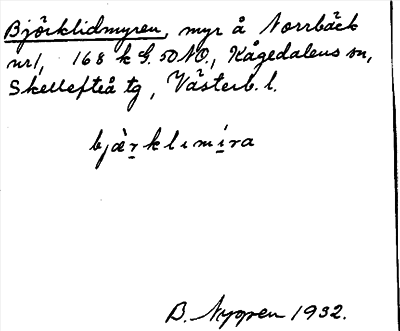 Björklidmyren, myr å Norrbäck
nr1, 168 k G. 50 NO., Kågedalens sn,
Skellefteå tg, Västerb. l.
bjæ̀rklımíra
B. Nygren 1932.